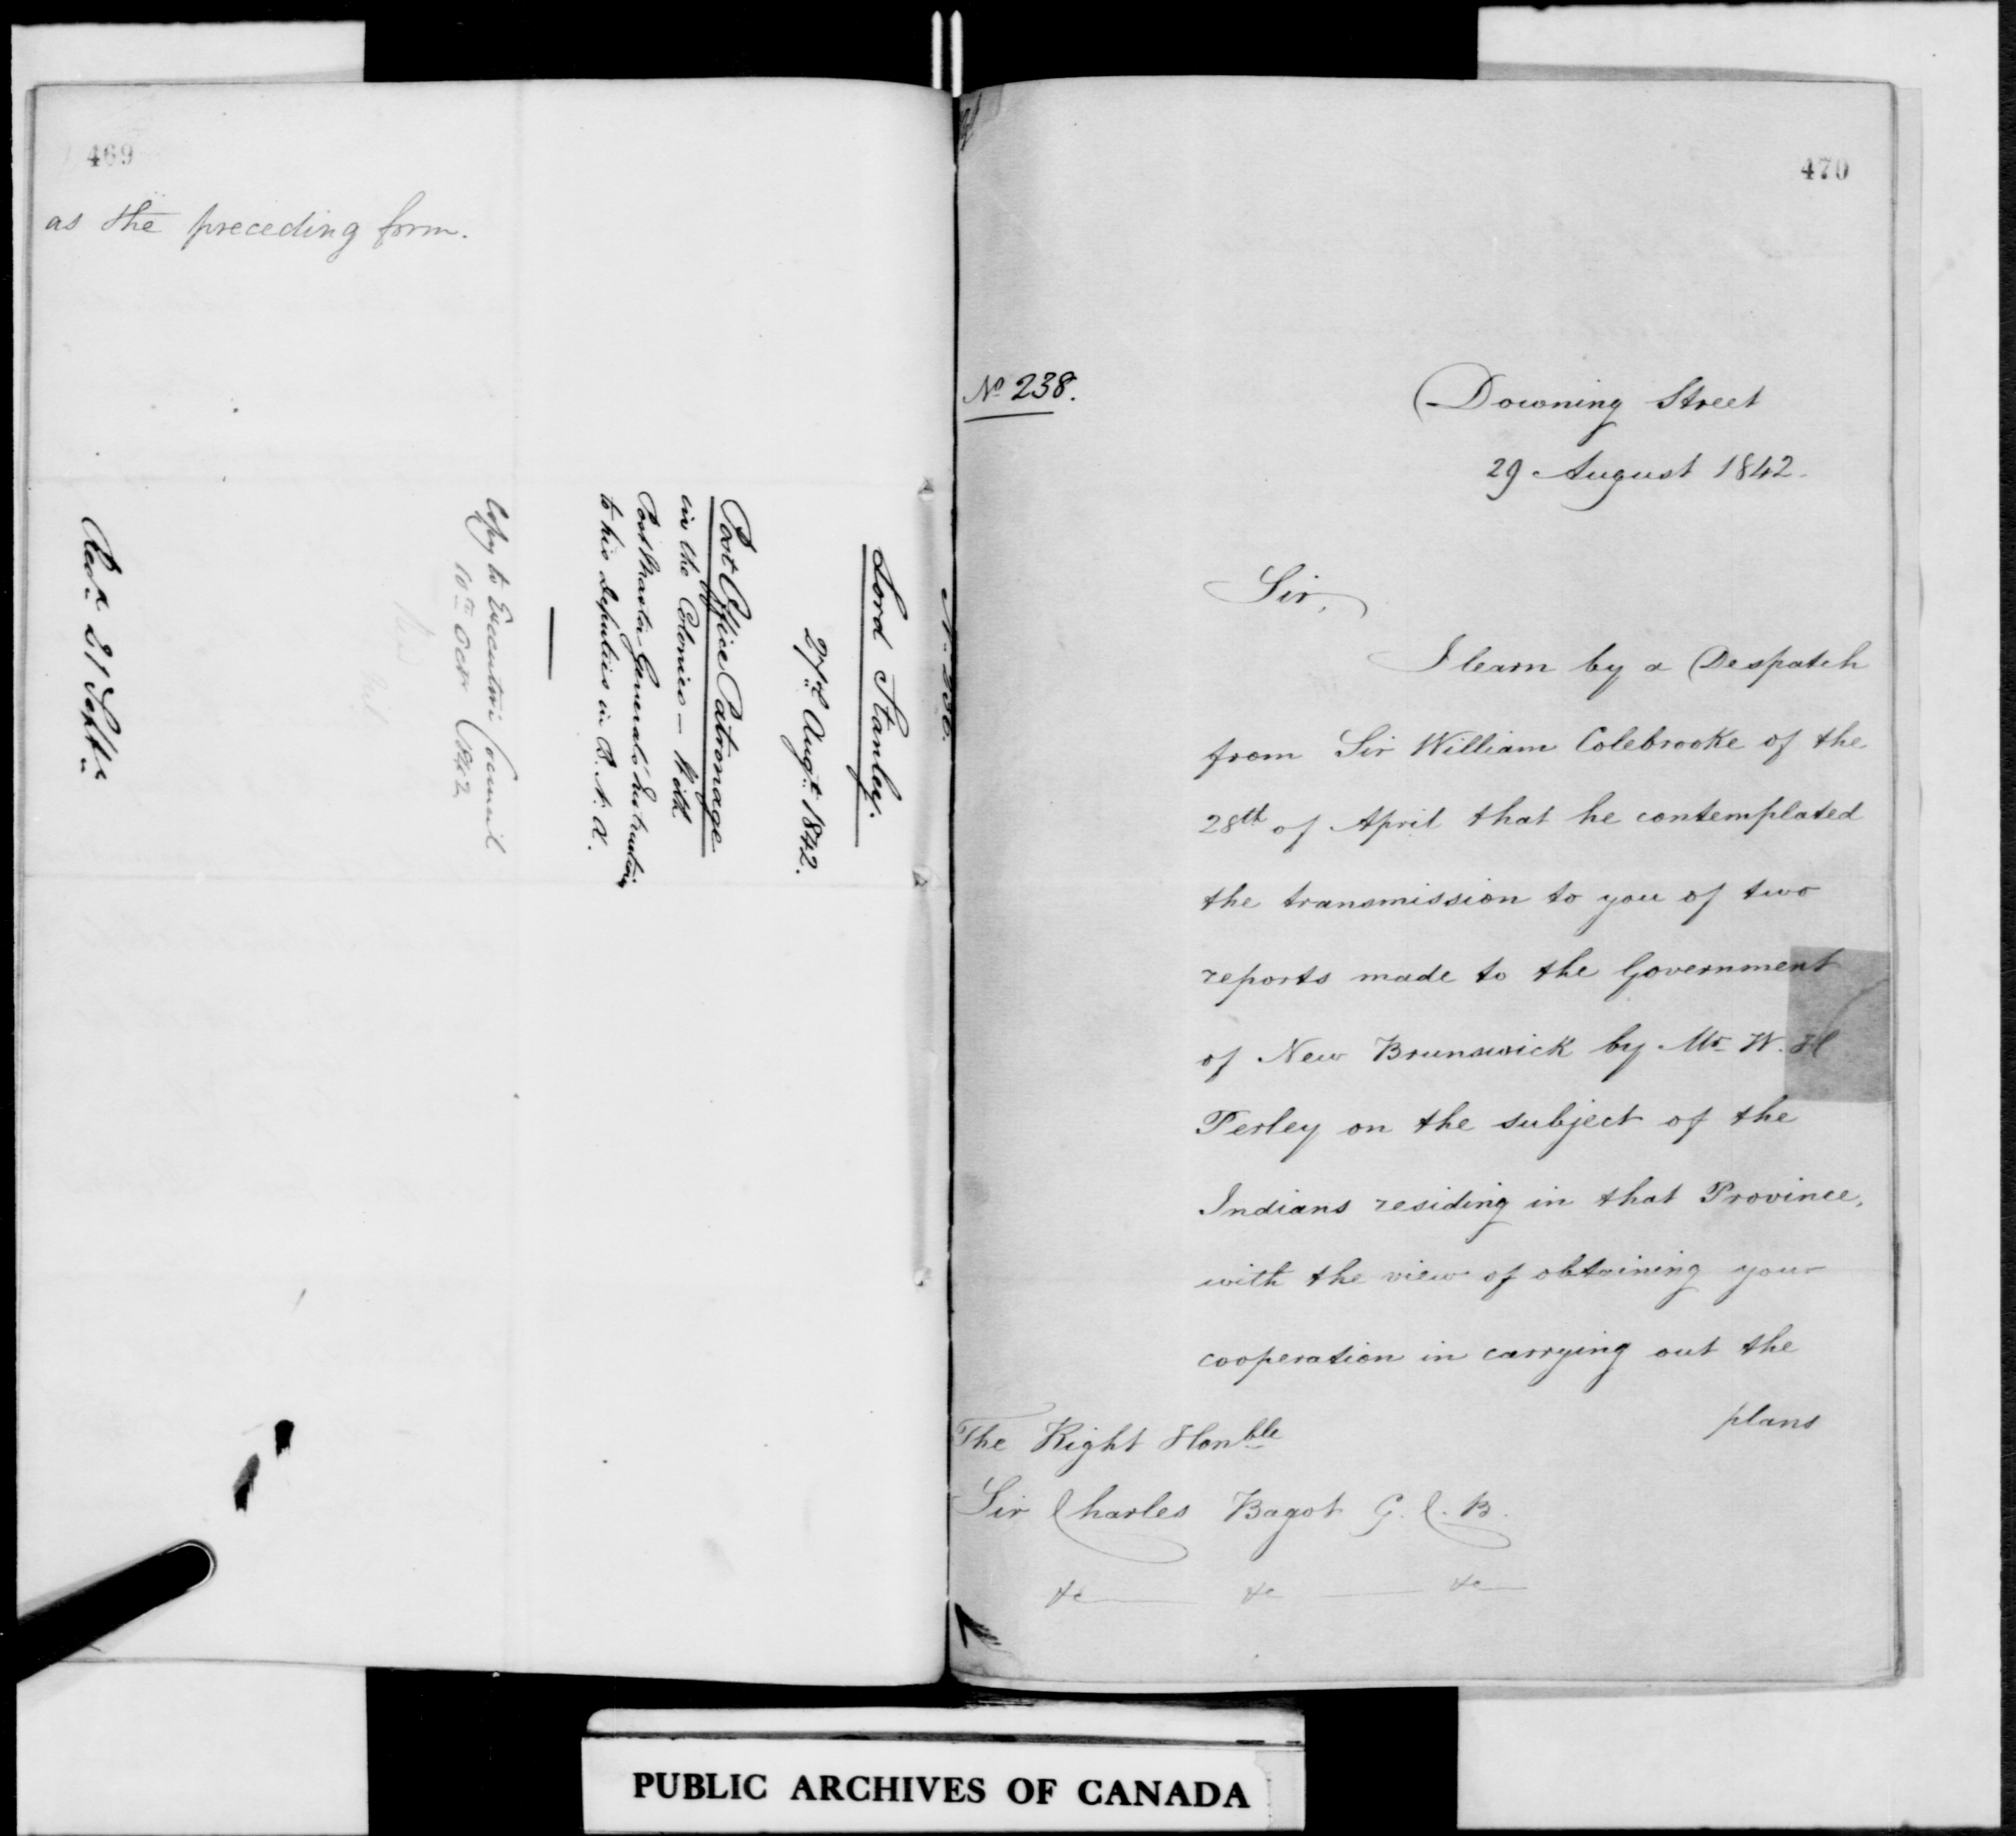 469
as the preceding form.
Lord Stanley.
27th Augt 1842.
Post Office Patronage
in the Colonies — With
Post Master General's Instructions
to his Deputies in B. N. A.
Copy to Executive Council
10th Octr 1842
Recd 21 Septr
470
No 238.
Downing Street
29 August 1842.
Sir,
I learn by a Despatch
from Sir William Colebrooke of the
28th of April that he contemplated
the transmission to you of two
reports made to the Government
of New Brunswick by Mr W. H
Perley on the subject of the
Indians residing in that Province,
with the view of obtaining your
cooperation in carrying out the
plans
The Right Honble
Sir Charles Bagot G.C.B.
&c &c &c
PUBLIC ARCHIVES OF CANADA